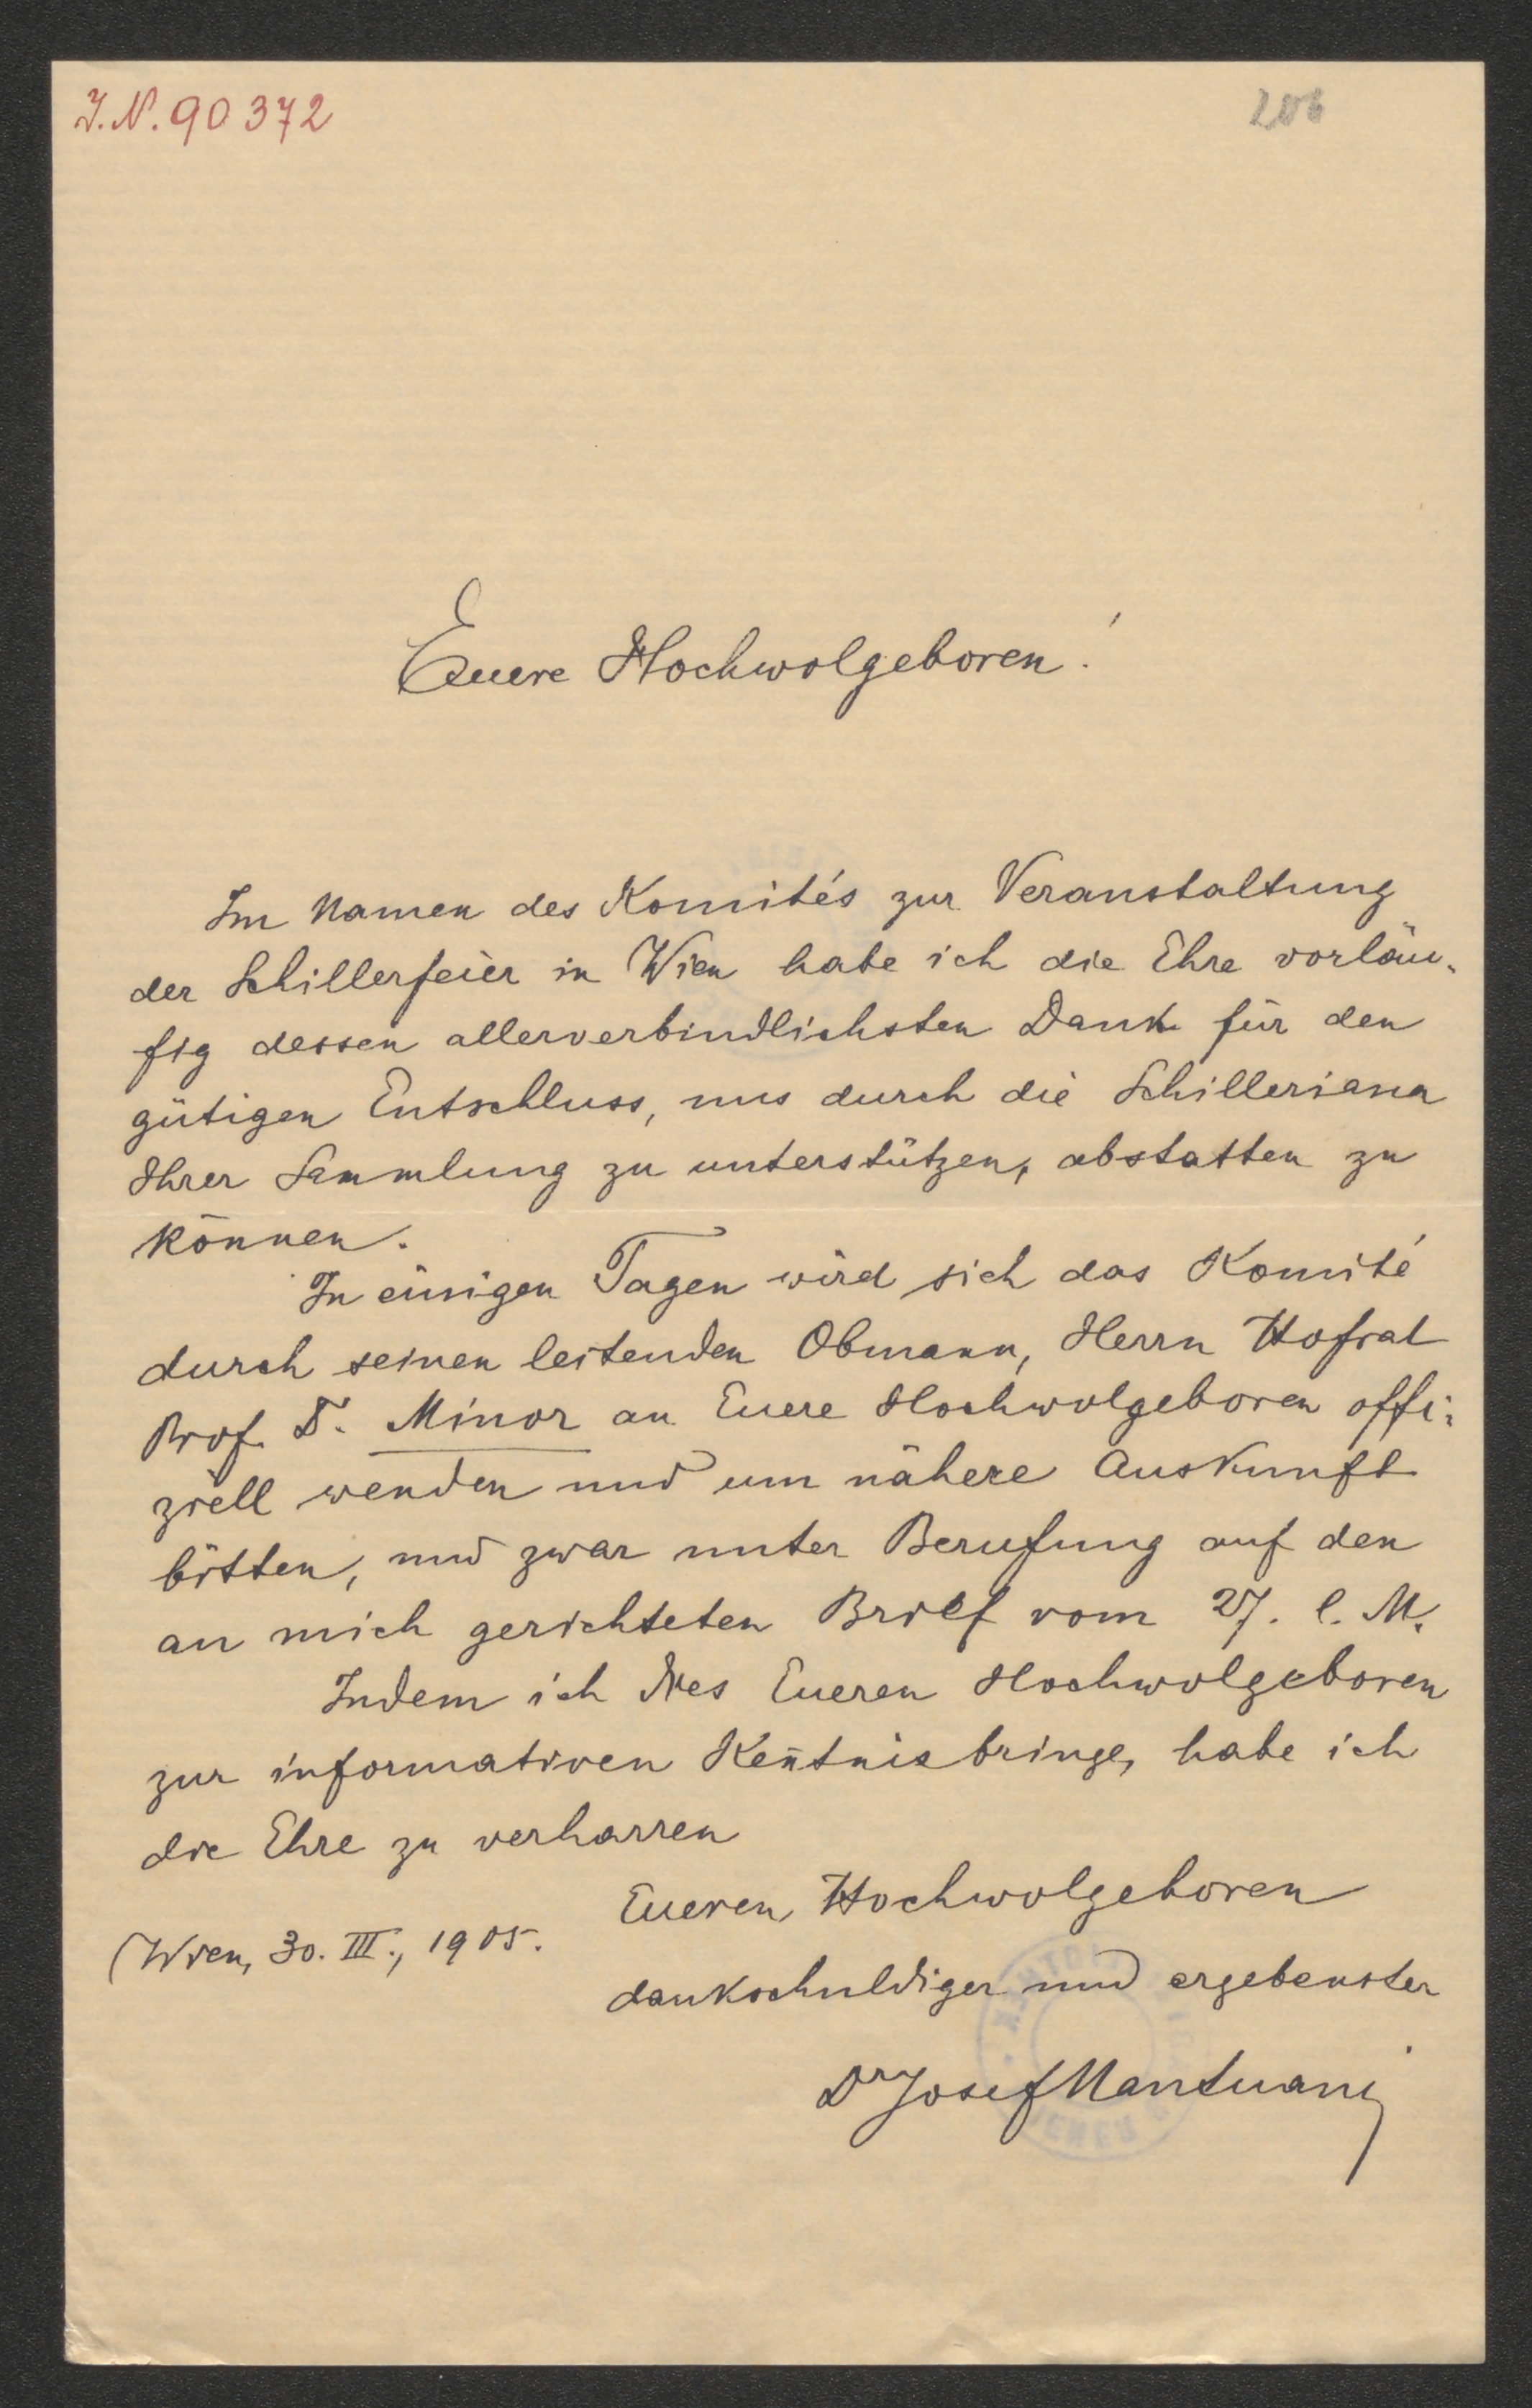 J.N. 90372
206
Euere Hochwolgeboren!
Im Namen des Komités zur Veranstaltung
der Schillerfeier in Wien habe ich die Ehre vorläu-
fig dessen allerverbindlichsten Dank für den
gütigen Entschluss, uns durch die Schilleriana
Ihrer Sammlung zu unterstützen, abstatten zu
können.
In einigen Tagen wird sich das Komité
durch seinen leitenden Obmann, Herrn Hofrat
Prof. D. Minor an Euere Hochwolgeboren offi-
ziell wenden und um nähere Auskunft
bitten, und zwar unter Berufung auf den
an mich gerichteten Brief vom 27. l. M.
Indem ich dies Eueren Hochwolgeboren
zur informativen Keñtnis bringe, habe ich
die Ehre zu verharren
Eueren Hochwolgeboren
Wien, 30. III., 1905.
dankschuldiger und ergebenster
Dr Josef Mantuani